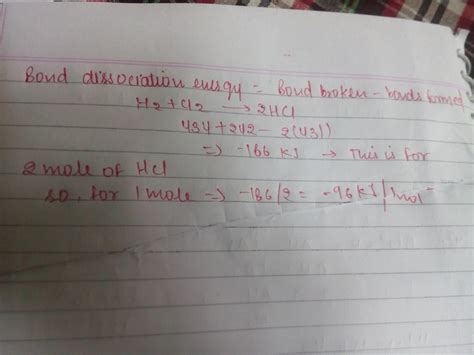 Bond dissociation energy = Bond broken - bonds formed
H2 + Cl2 → 2HCl
434 + 242 - 2(431)
=> -186 kJ → This is for
2 mole of HCl
so, for 1 mole => -186/2 = -96 kJ/mol